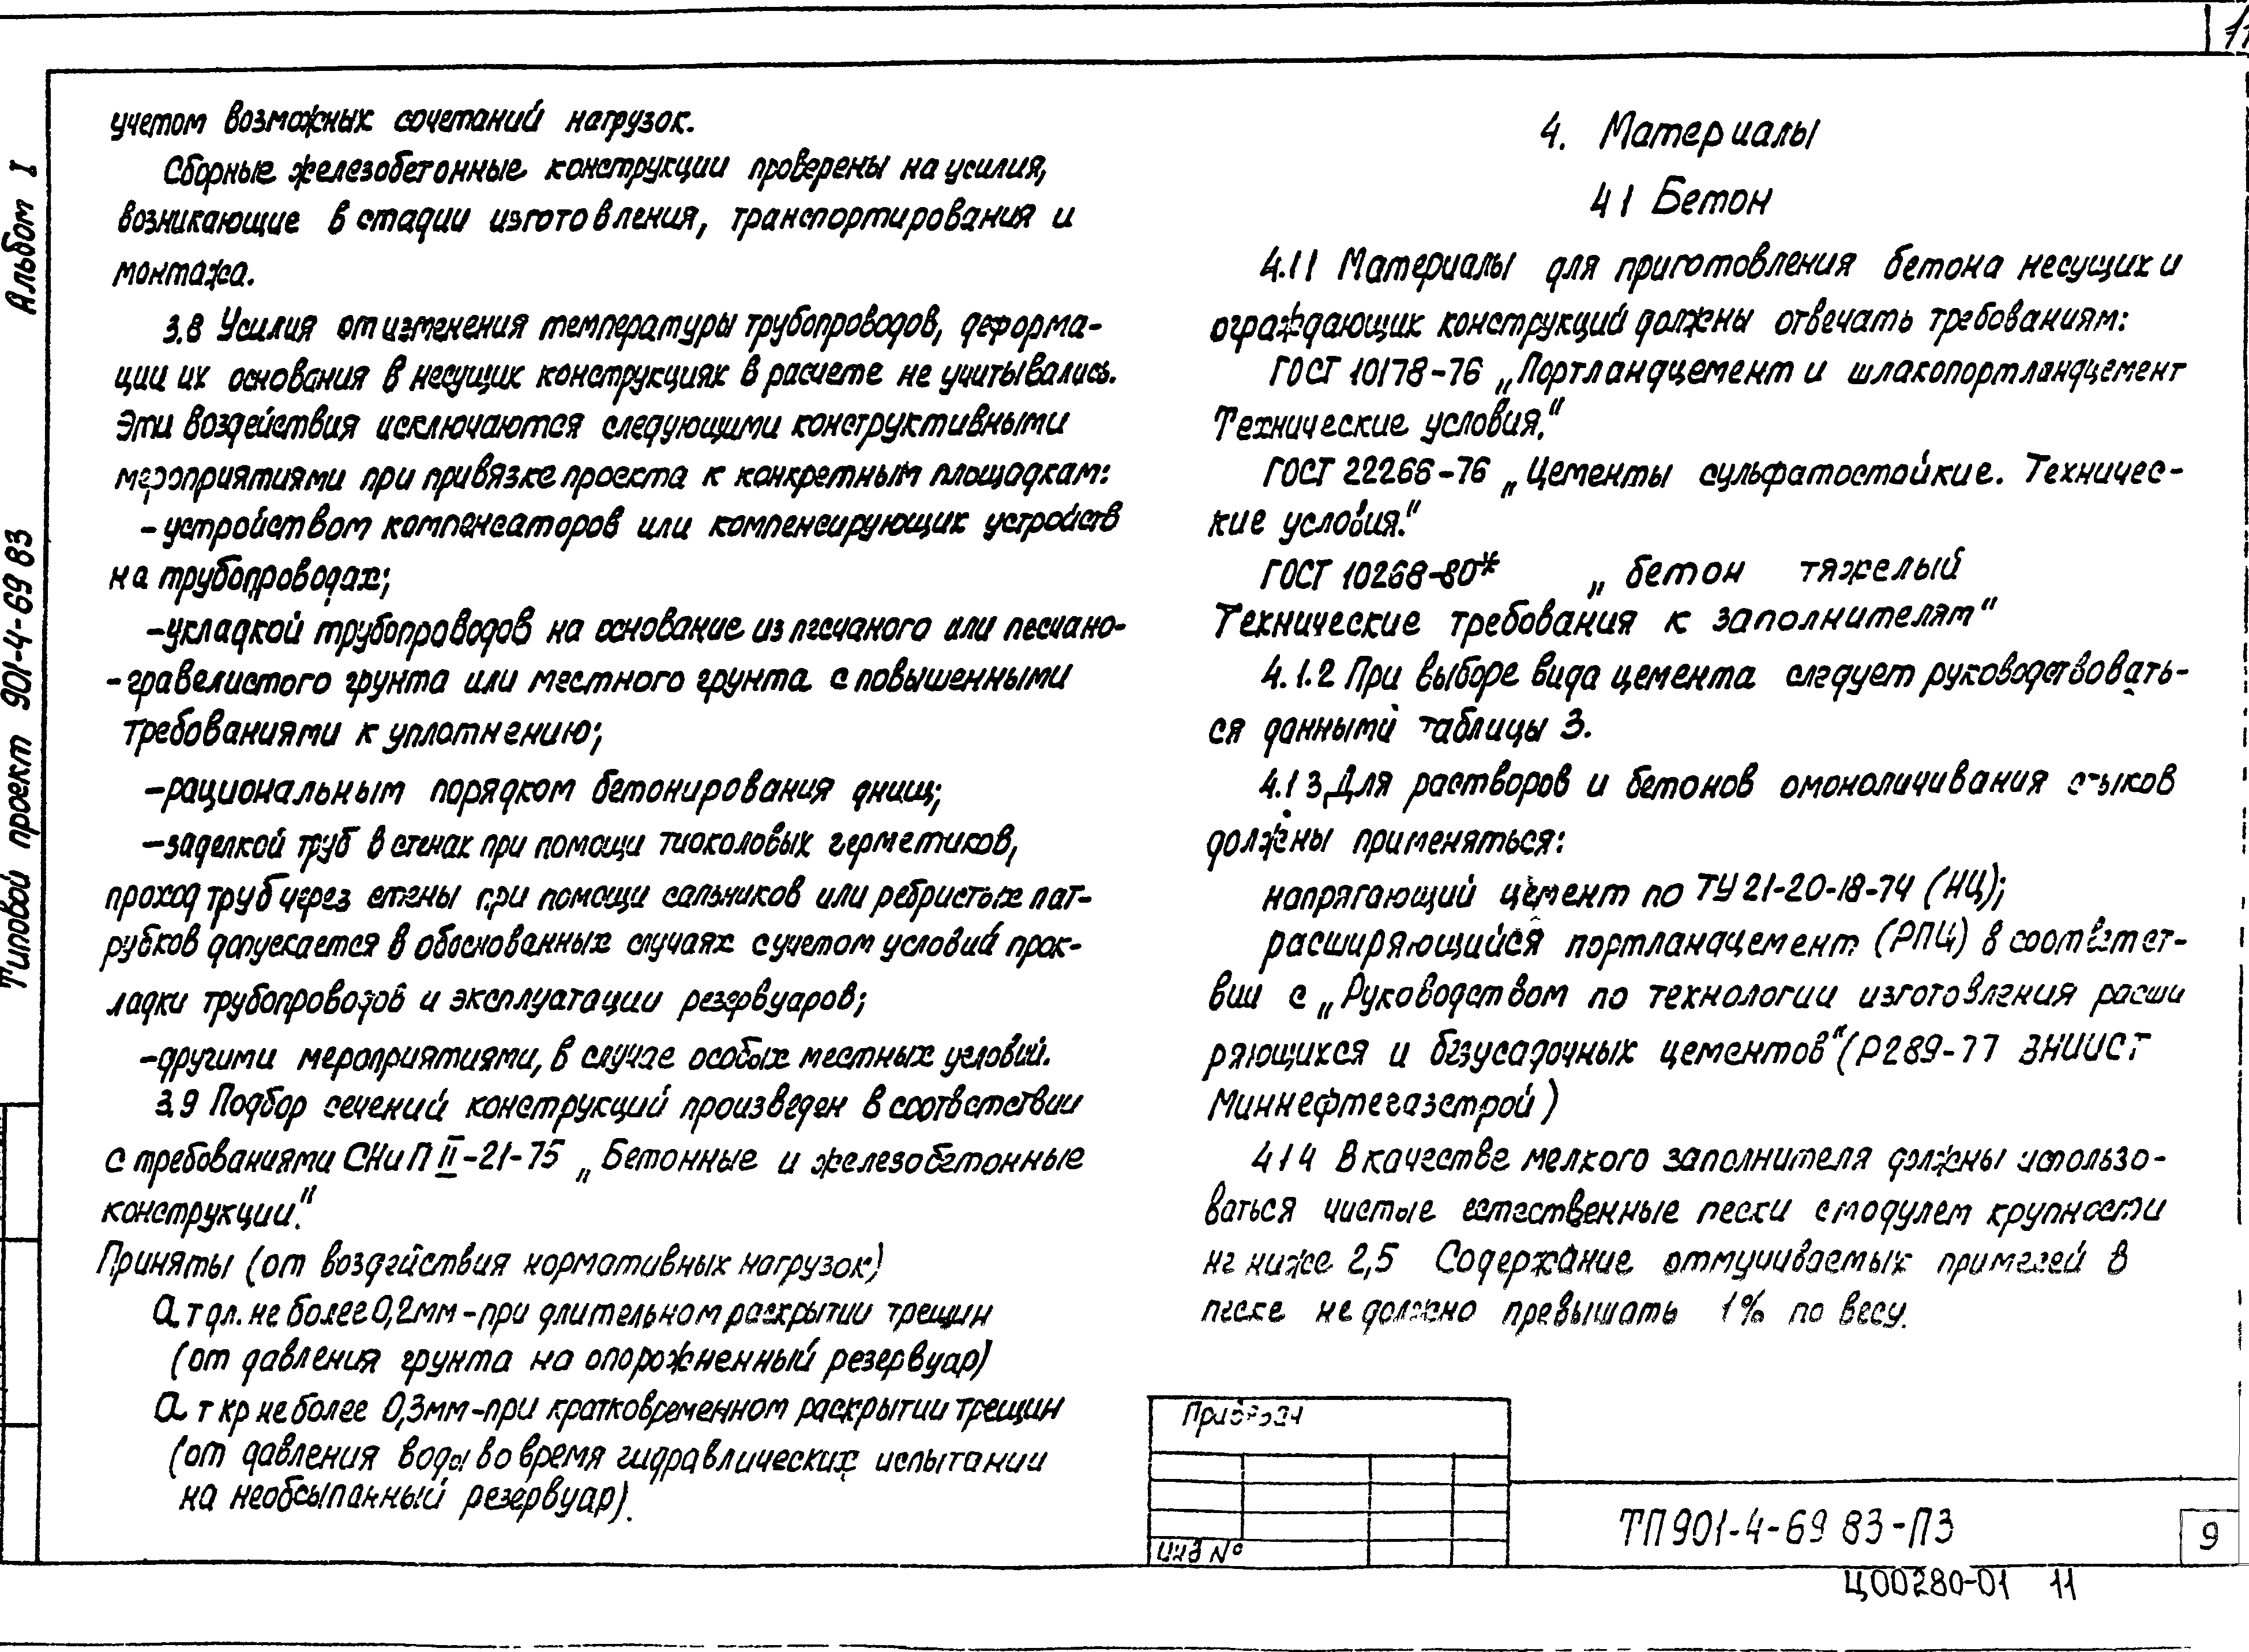 учетом возможных сочетаний нагрузок.
Сборные железобетонные конструкции проверены на усилия,
возникающие в стадии изготовления, транспортирования и
монтажа.
3.8 Усилия от изменения температуры трубопроводов, деформа-
ции их основания в несущих конструкциях в расчете не учитывались.
Эти воздействия исключаются следующими конструктивными
мероприятиями при привязке проекта к конкретным площадкам:
-устройством компенсаторов или компенсирующих устройств
на трубопроводах;
-укладкой трубопроводов на основание из песчаного или песчано-
-гравелистого грунта или местного грунта с повышенными
требованиями к уплотнению;
-рациональным порядком бетонирования днищ;
-заделкой труб в стенах при помощи тиоколовых герметиков,
проход труб через стены при помощи сальников или ребристых пат-
рубков допускается в обоснованных случаях с учетом условий прок-
ладки трубопроводов и эксплуатации резервуаров;
-другими мероприятиями, в случае особых местных условий.
3.9 Подбор сечений конструкций произведен в соответствии
с требованиями СНиП II-21-75 „Бетонные и железобетонные
конструкции."
Приняты (от воздействия нормативных нагрузок)
а т дл. не более 0,2мм-при длительном раскрытии трещин
(от давления грунта на опорожненный резервуар)
а т кр не более 0,3мм-при кратковременном раскрытии трещин
(от давления воды во время гидравлических испытании
на необсыпанный резервуар).
4. Материалы
4 1 Бетон
4.1 1 Материалы для приготовления бетона несущих и
ограждающих конструкций должны отвечать требованиям:
ГОСТ 10178-76 „Портландцемент и шлакопортландцемент
Технические условия."
ГОСТ 22266-76 „Цементы сульфатостойкие. Техничес-
кие условия."
ГОСТ 10268-80* „бетон тяжелый
Технические требования к заполнителям"
4.1.2 При выборе вида цемента следует руководствовать-
ся данными таблицы 3.
4.1 3 Для растворов и бетонов омоноличивания стыков
должны применяться:
напрягающий цемент по ТУ 21-20-18-74 (НЦ);
расширяющийся портландцемент (РПЦ) в соответст-
вии с „Руководством по технологии изготовления расши
ряющихся и безусадочных цементов" (Р289-77 ВНИИСТ
Миннефтегазстрой)
4 1 4 В качестве мелкого заполнителя должны использо-
ваться чистые естественные пески с модулем крупности
не ниже 2,5 Содержание отмучиваемых примесей в
песке не должно превышать 1% по весу.
Привязан
Инв №
ТП 901-4-69 83-ПЗ
9
Ц00280-01 11
Типовой проект 901-4-69 83 Альбом I